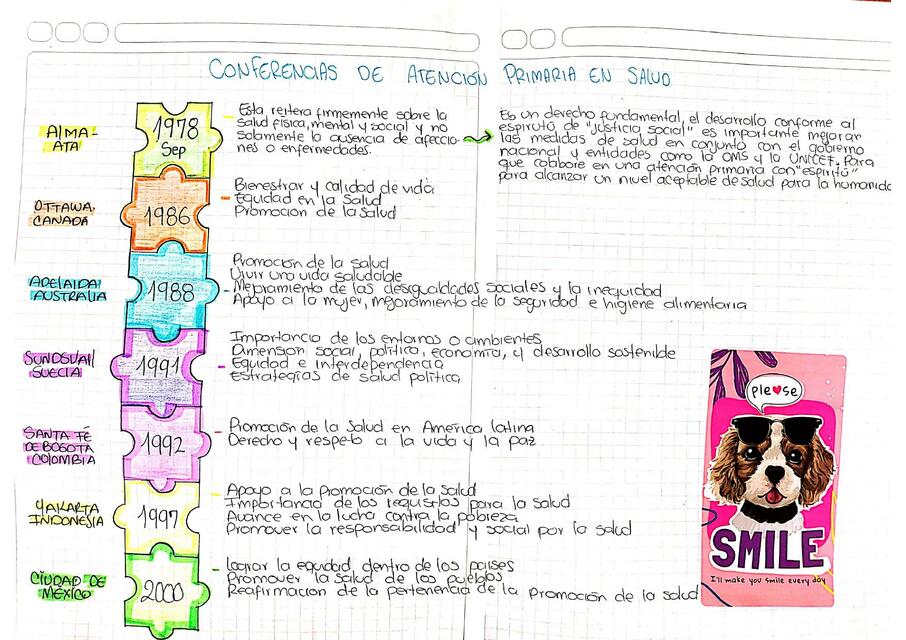 CONFERENCIAS DE ATENCIÓN PRIMARIA EN SALUD
ALMA-
ATA
1978
Sep
Esta reitera firmemente sobre la
salud física, mental y social y no
solamente la ausencia de afeccio-
nes o enfermedades.
Es un derecho fundamental, el desarrollo conforme al
espirutú de "justicia social" es importante mejorar
las medidas de salud en conjunto con el gobierno
nacional y entidades como la OMS y la UNICEF. Para
que colabore en una atención primaria con "espiritú"
para alcanzar un nivel aceptable de salud para la humanida
OTTAWA,
CANADA
1986
Bienestrar y calidad de vida
Equidad en la Salud
Promoción de la salud
ADELAIDA
AUSTRALIA
1988
Promoción de la salud
Vivir una vida saludable
Mejoramiento de las desigualdades sociales y la inequidad
Apoyo a la mujer, mejoramiento de la seguridad e higiene alimentaria
SUNDSVALL
SUECIA
1991
Importancia de los entornos o ambientes
Dimension social, político, economía, y desarrollo sostenible
Equidad e interdependencia
Estrategias de salud política
SANTA FÉ
DE BOGOTA
COLOMBIA
1992
Promoción de la Salud en América latina
Derecho y respeto a la vida y la paz
YAKARTA
INDONESIA
1997
Apoyo a la promoción de la salud
Importancia de los requistos para la salud
Avance en la lucha contra la pobreza
Promover la responsabilidad y social por la salud
CIUDAD DE
MÉXICO
2000
Lograr la equidad, dentro de los países
Promover la salud de los pueblos
Reafirmación de la pertenencia de la promoción de la salud
ple♥se
SMILE
I'll make you smile every day